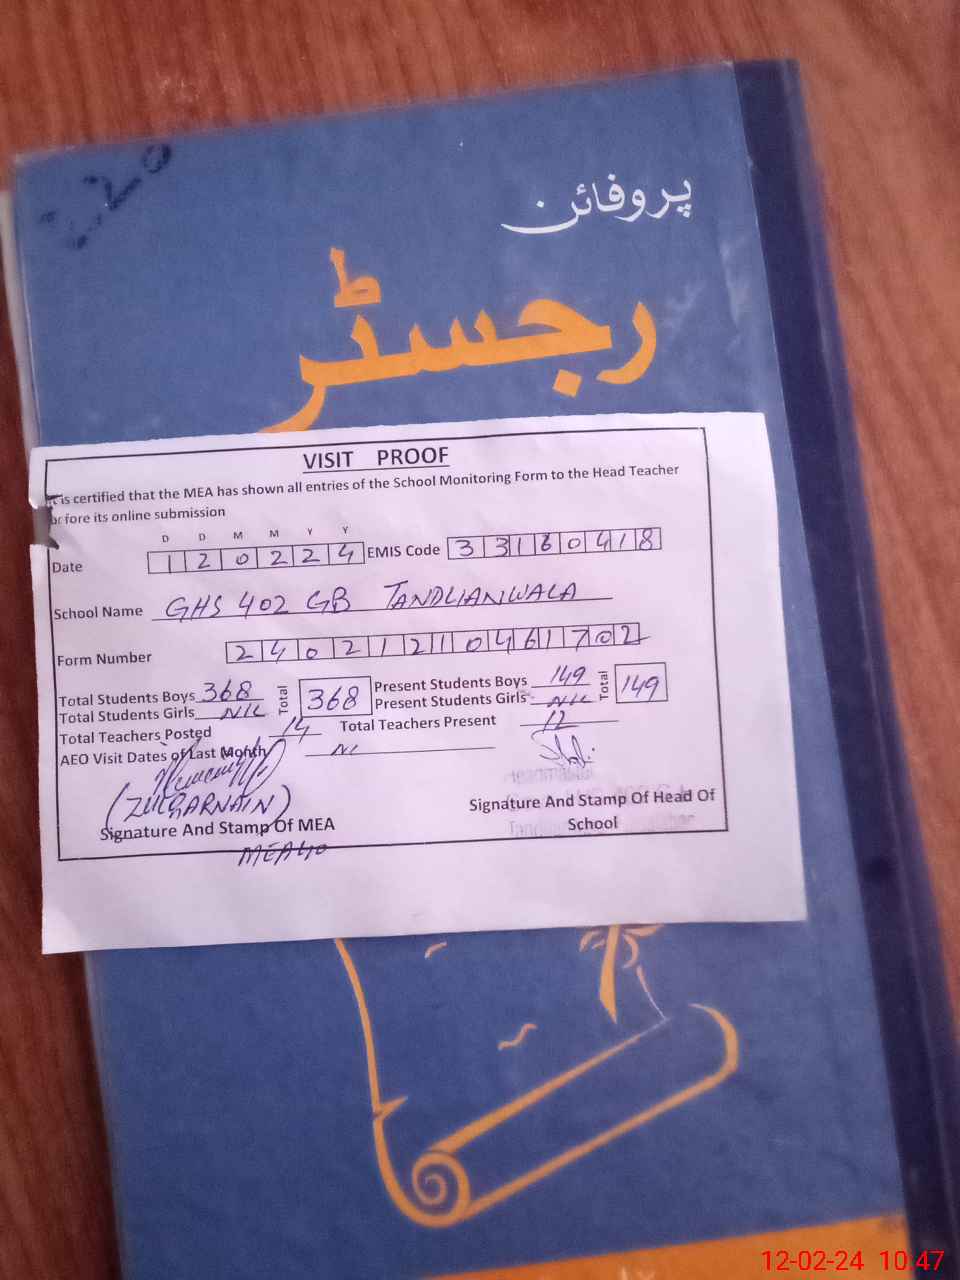 پروفائن
رجسٹر
VISIT PROOF
is certified that the MEA has shown all entries of the School Monitoring Form to the Head Teacher
fore its online submission
D D M M Y Y
Date 120224 EMIS Code 33160418
School Name GHS 402 GB TANDLIANWALA
Form Number 24021210461702
Total Students Boys 368 Total 368 Present Students Boys 149 Total 149
Total Students Girls NIL Present Students Girls NIL
Total Teachers Posted 14 Total Teachers Present 12
AEO Visit Dates of Last Month
(ZULQARNAIN)
Signature And Stamp Of MEA
Signature And Stamp Of Head Of
School
MEA40
12-02-24 10:47